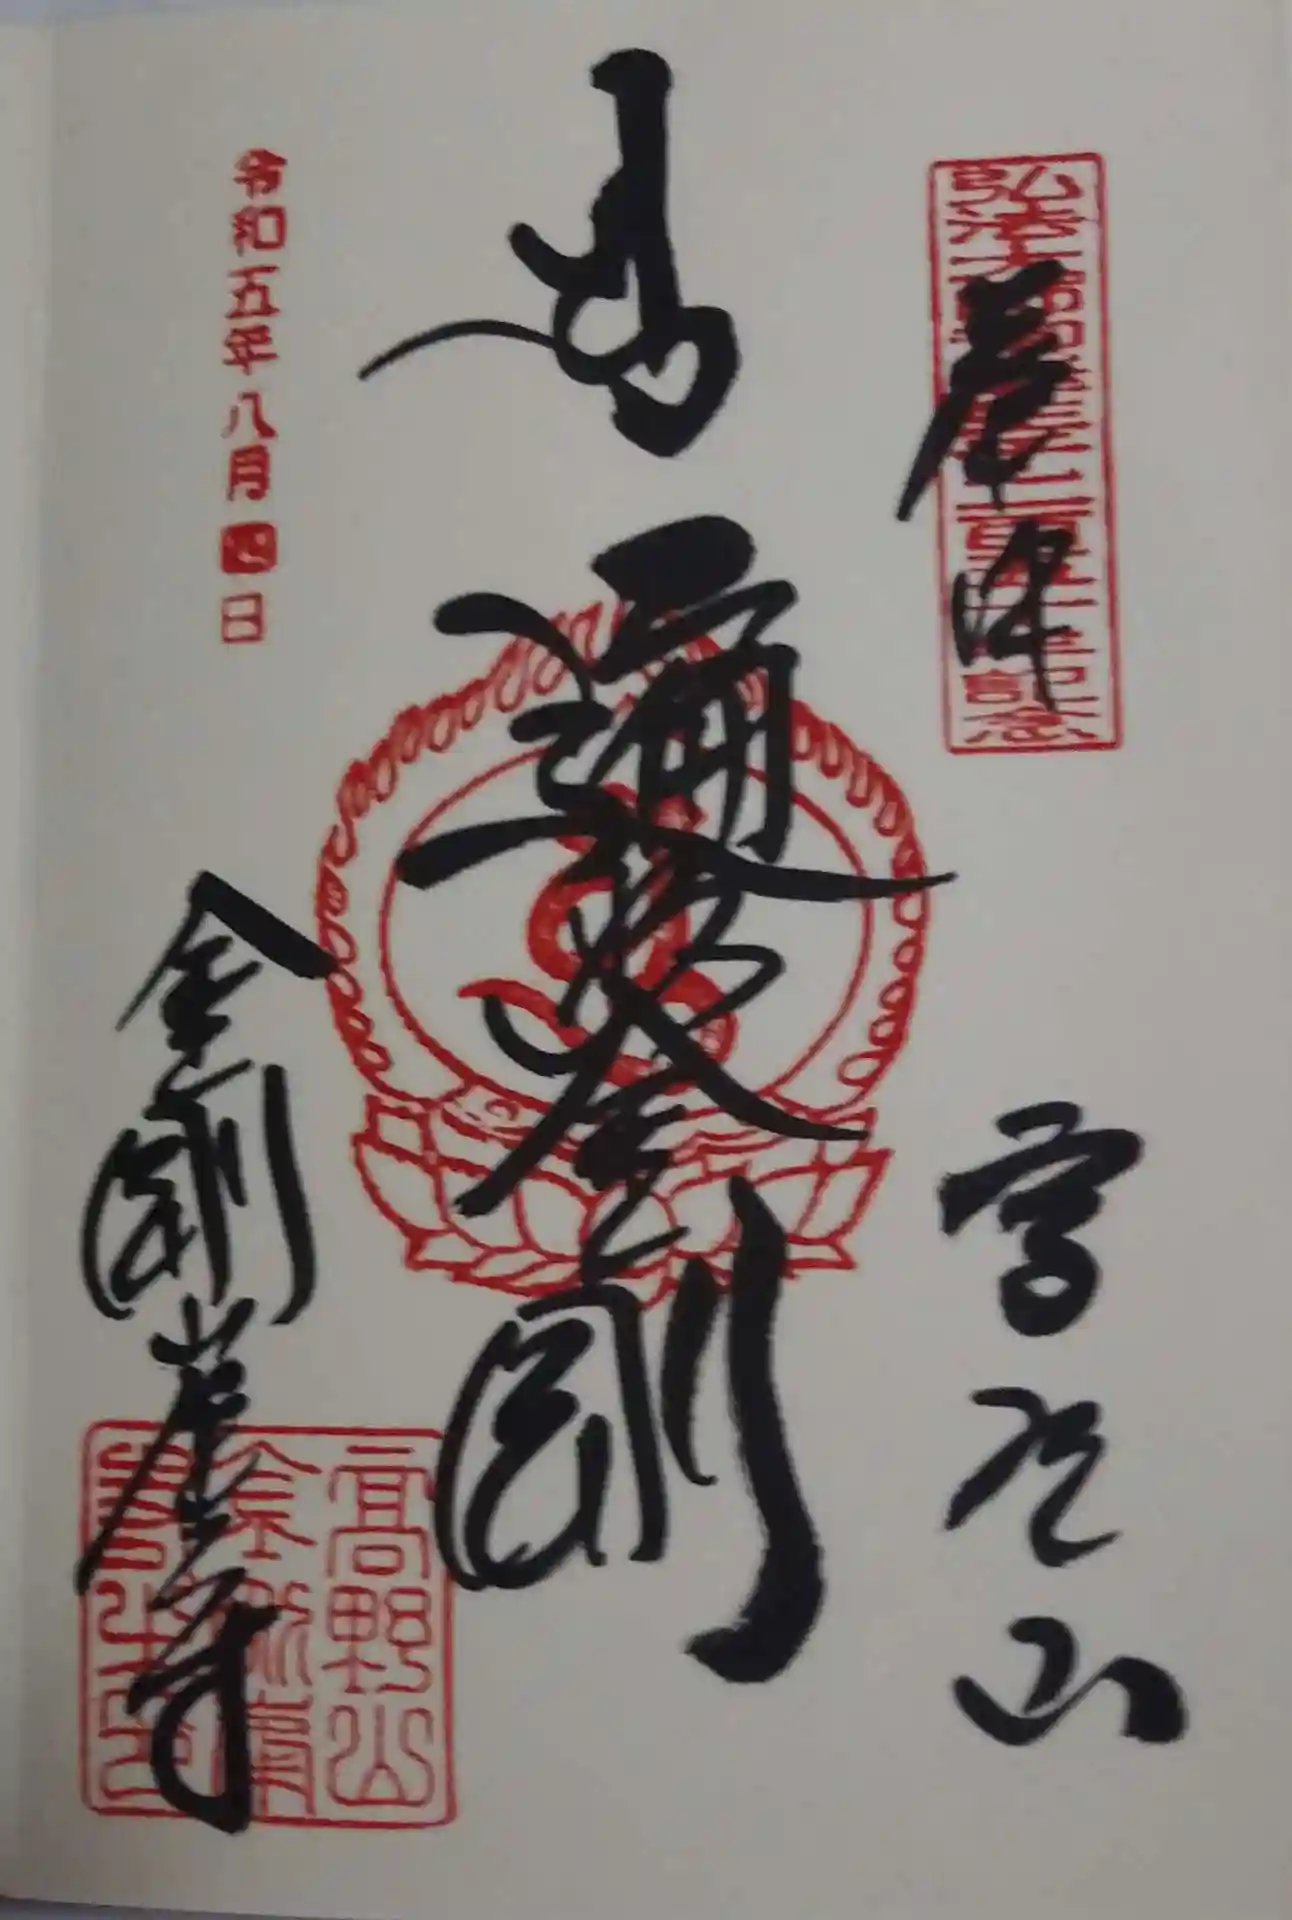 奉拝
弘法大師御誕生千二百五十年記念
高野山
南無
遍照金剛
令和五年八月四日
金剛峯寺
高野山
金剛峯